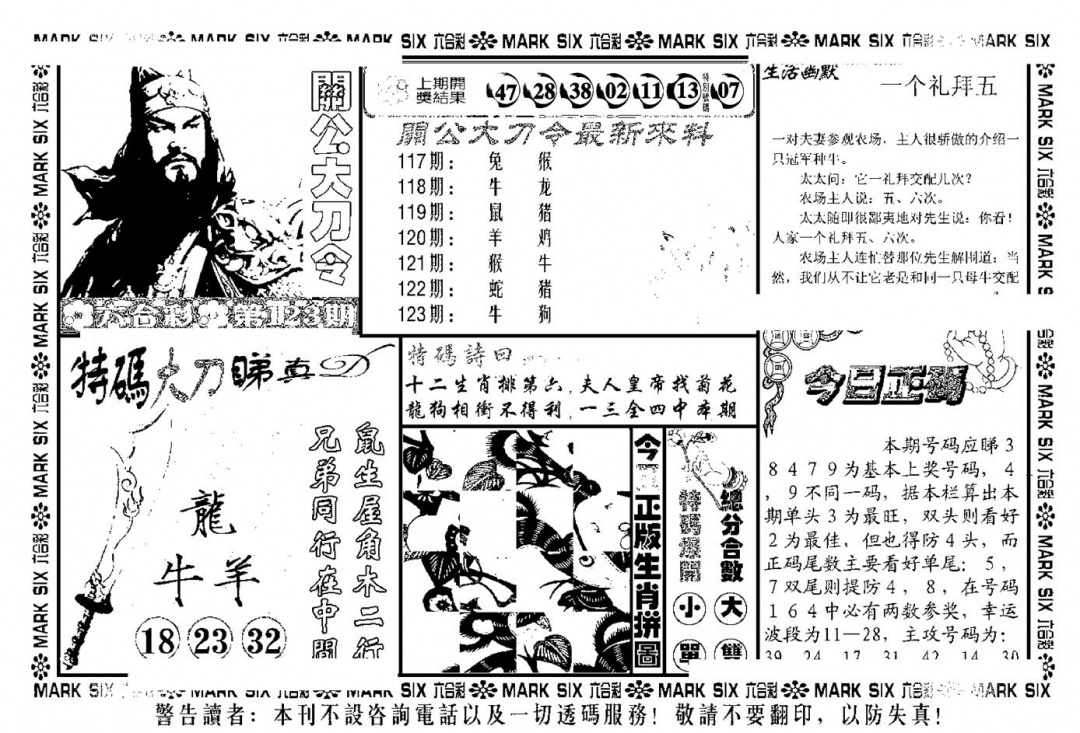 MARK SIX 六合彩 MARK SIX 六合彩 MARK SIX 六合彩 MARK SIX 六合彩 MARK SIX
關公大刀令
六合彩 第123期
上期開
獎結果
47 28 38 02 11 13 特別號碼 07
關公大刀令最新來料
117期： 兔 猴
118期： 牛 龙
119期： 鼠 猪
120期： 羊 鸡
121期： 猴 牛
122期： 蛇 猪
123期： 牛 狗
生活幽默
一个礼拜五
一对夫妻参观农场，主人很骄傲的介绍一
只冠军种牛。
太太问：它一礼拜交配几次？
农场主人说：五、六次。
太太随即很鄙夷地对先生说：你看！
人家一个礼拜五、六次。
农场主人连忙替那位先生解围道：当
然，我们从不让它老是和同一只母牛交配
特碼大刀睇真D
鼠生屋角木二行
兄弟同行在中間
龍
牛 羊
18 23 32
特碼詩曰
十二生肖排第六，夫人皇帝找菊花
龍狗相衝不得利，一三全四中本期
今
正版生肖拼圖
總分合數
特碼
大 小
雙 單
今日正碼
本期号码应睇3
8479为基本上奖号码，4
，9不同一码，据本栏算出本
期单头3为最旺，双头则看好
2为最佳，但也得防4头，而
正码尾数主要看好单尾：5，
7双尾则提防4，8，在号码
164中必有两数参奖，幸运
波段为11—28，主攻号码为：
39 24 17 31 42 14 30
MARK SIX 六合彩 MARK SIX 六合彩 MARK SIX 六合彩 MARK SIX
警告讀者：本刊不設咨詢電話以及一切透碼服務！敬請不要翻印，以防失真！